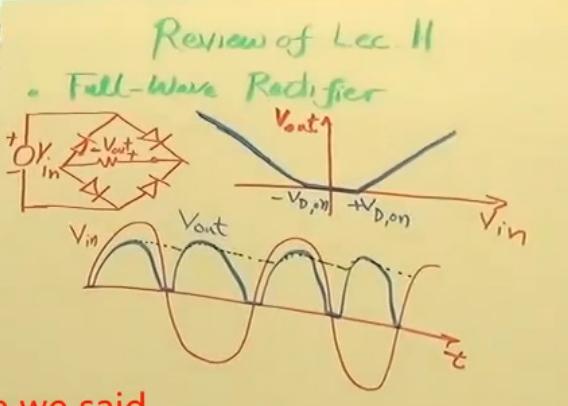 Review of Lec. 11
• Full-Wave Rectifier
Vout
+
Vin
-
- Vout +
-VD,on
+VD,on
Vin
Vin
Vout
t
we said